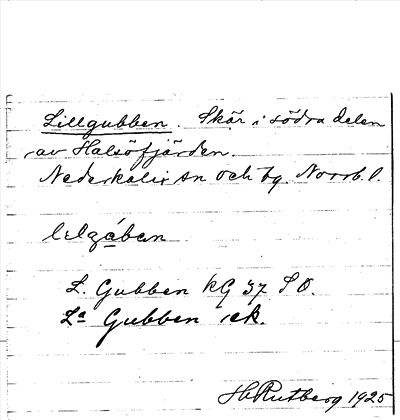 Lillgubben. Skär i södra delen
av Halsöfjärden.
Nederkalix sn och tg. Norrb. l.
lilgában
L. Gubben kG 37 SO.
La Gubben ek.
HRutberg 1925